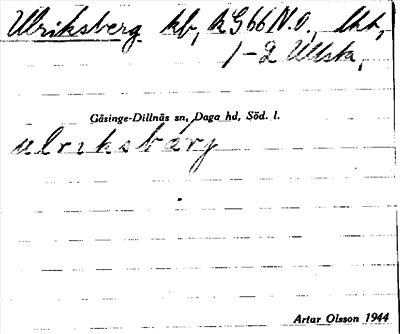 Ulriksberg hb, kG66 N.O.,
1-2 Ullsta,
Gåsinge-Dillnäs sn, Daga hd, Söd. l.
ulriksbärj
Artur Olsson 1944